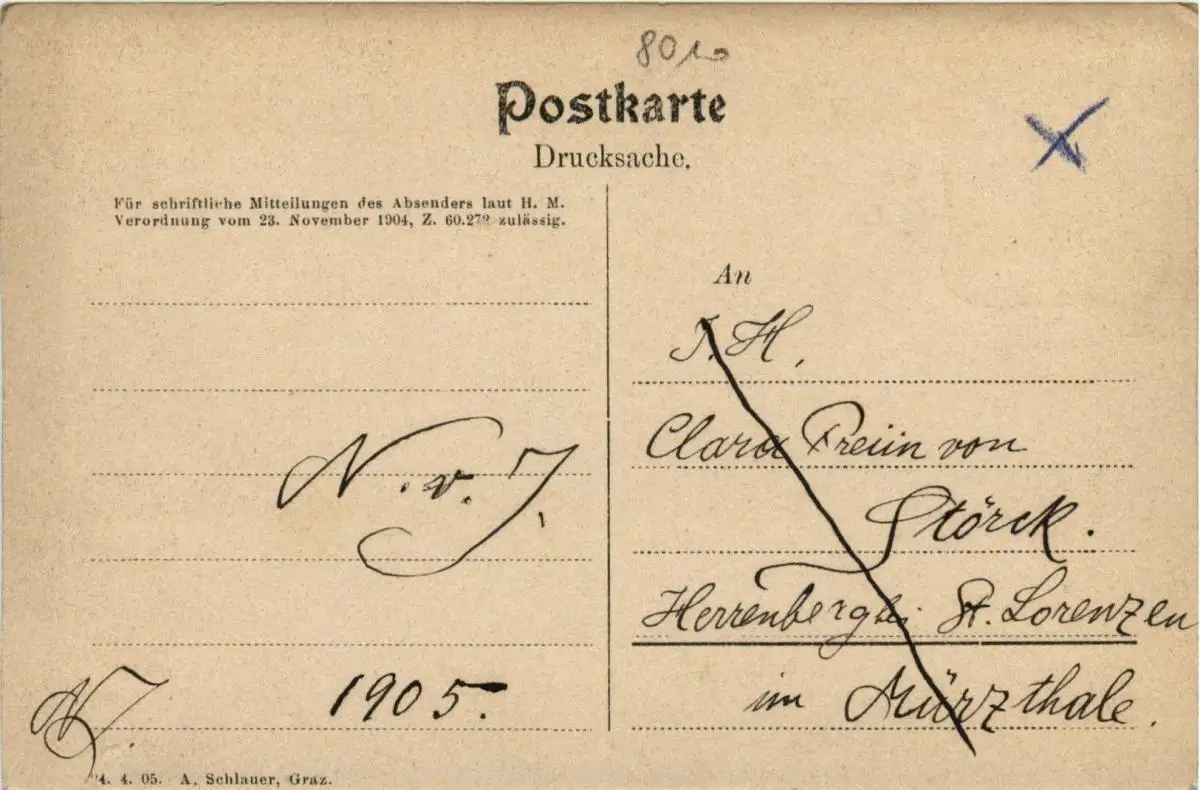 Postkarte
Drucksache.
Für schriftliche Mitteilungen des Absenders laut H. M.
Verordnung vom 23. November 1904, Z. 60.272 zulässig.
N. v. J.
1905.
4. 4. 05. A. Schlauer, Graz.
An
J. H.
Clara Freiin von
Störck.
Herrenberg bei St. Lorenzen
im Mürzthale.